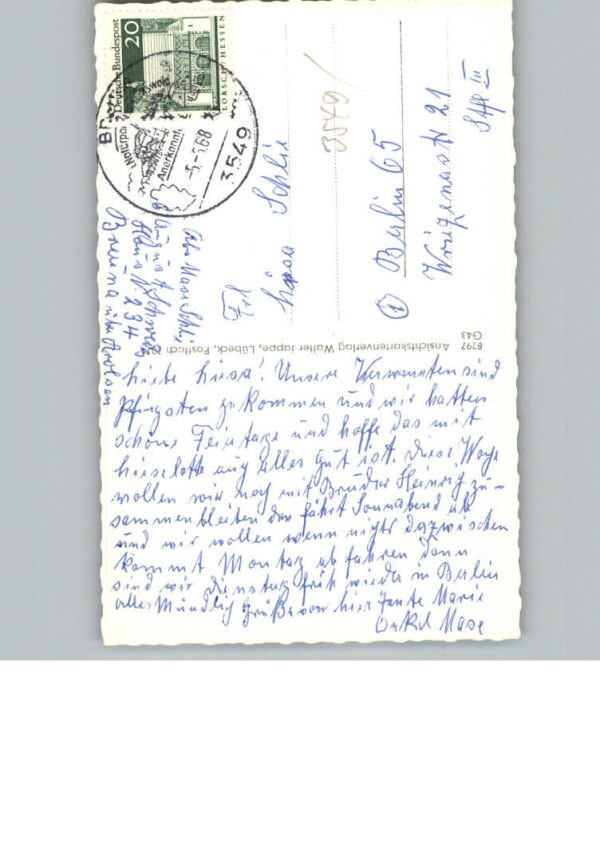 Deutsche Bundespost
20
LORSCH/HESSEN
Naturpark
Anerkannt
-5.-6.68
3549
3549/
Frl
Schlie
① Berlin 65
21
Stfl III
Abs. Max Schlie
Haus N. 234
Breuna über Arolsen
8297 Ansichtskartenverlag Walter Jappe, Lübeck, Postfach
G43
Liebe Liesa! Unsere Verwannten sind
Pfingsten gekommen und wir hatten
schöne Feiertage und hoffe das mit
Lieselotte auch alles gut ist. Diese Woche
wollen wir noch mit Bruder Heinrich zu-
sammenbleiben der fährt Sonnabend ab
und wir wollen wenn nichts dazwischen
kommt Montag ab fahren dann
sind wir Dienstag früh wieder in Berlin
alles Mündlich Grüße von hier Tante Marie
Onkel Maxe